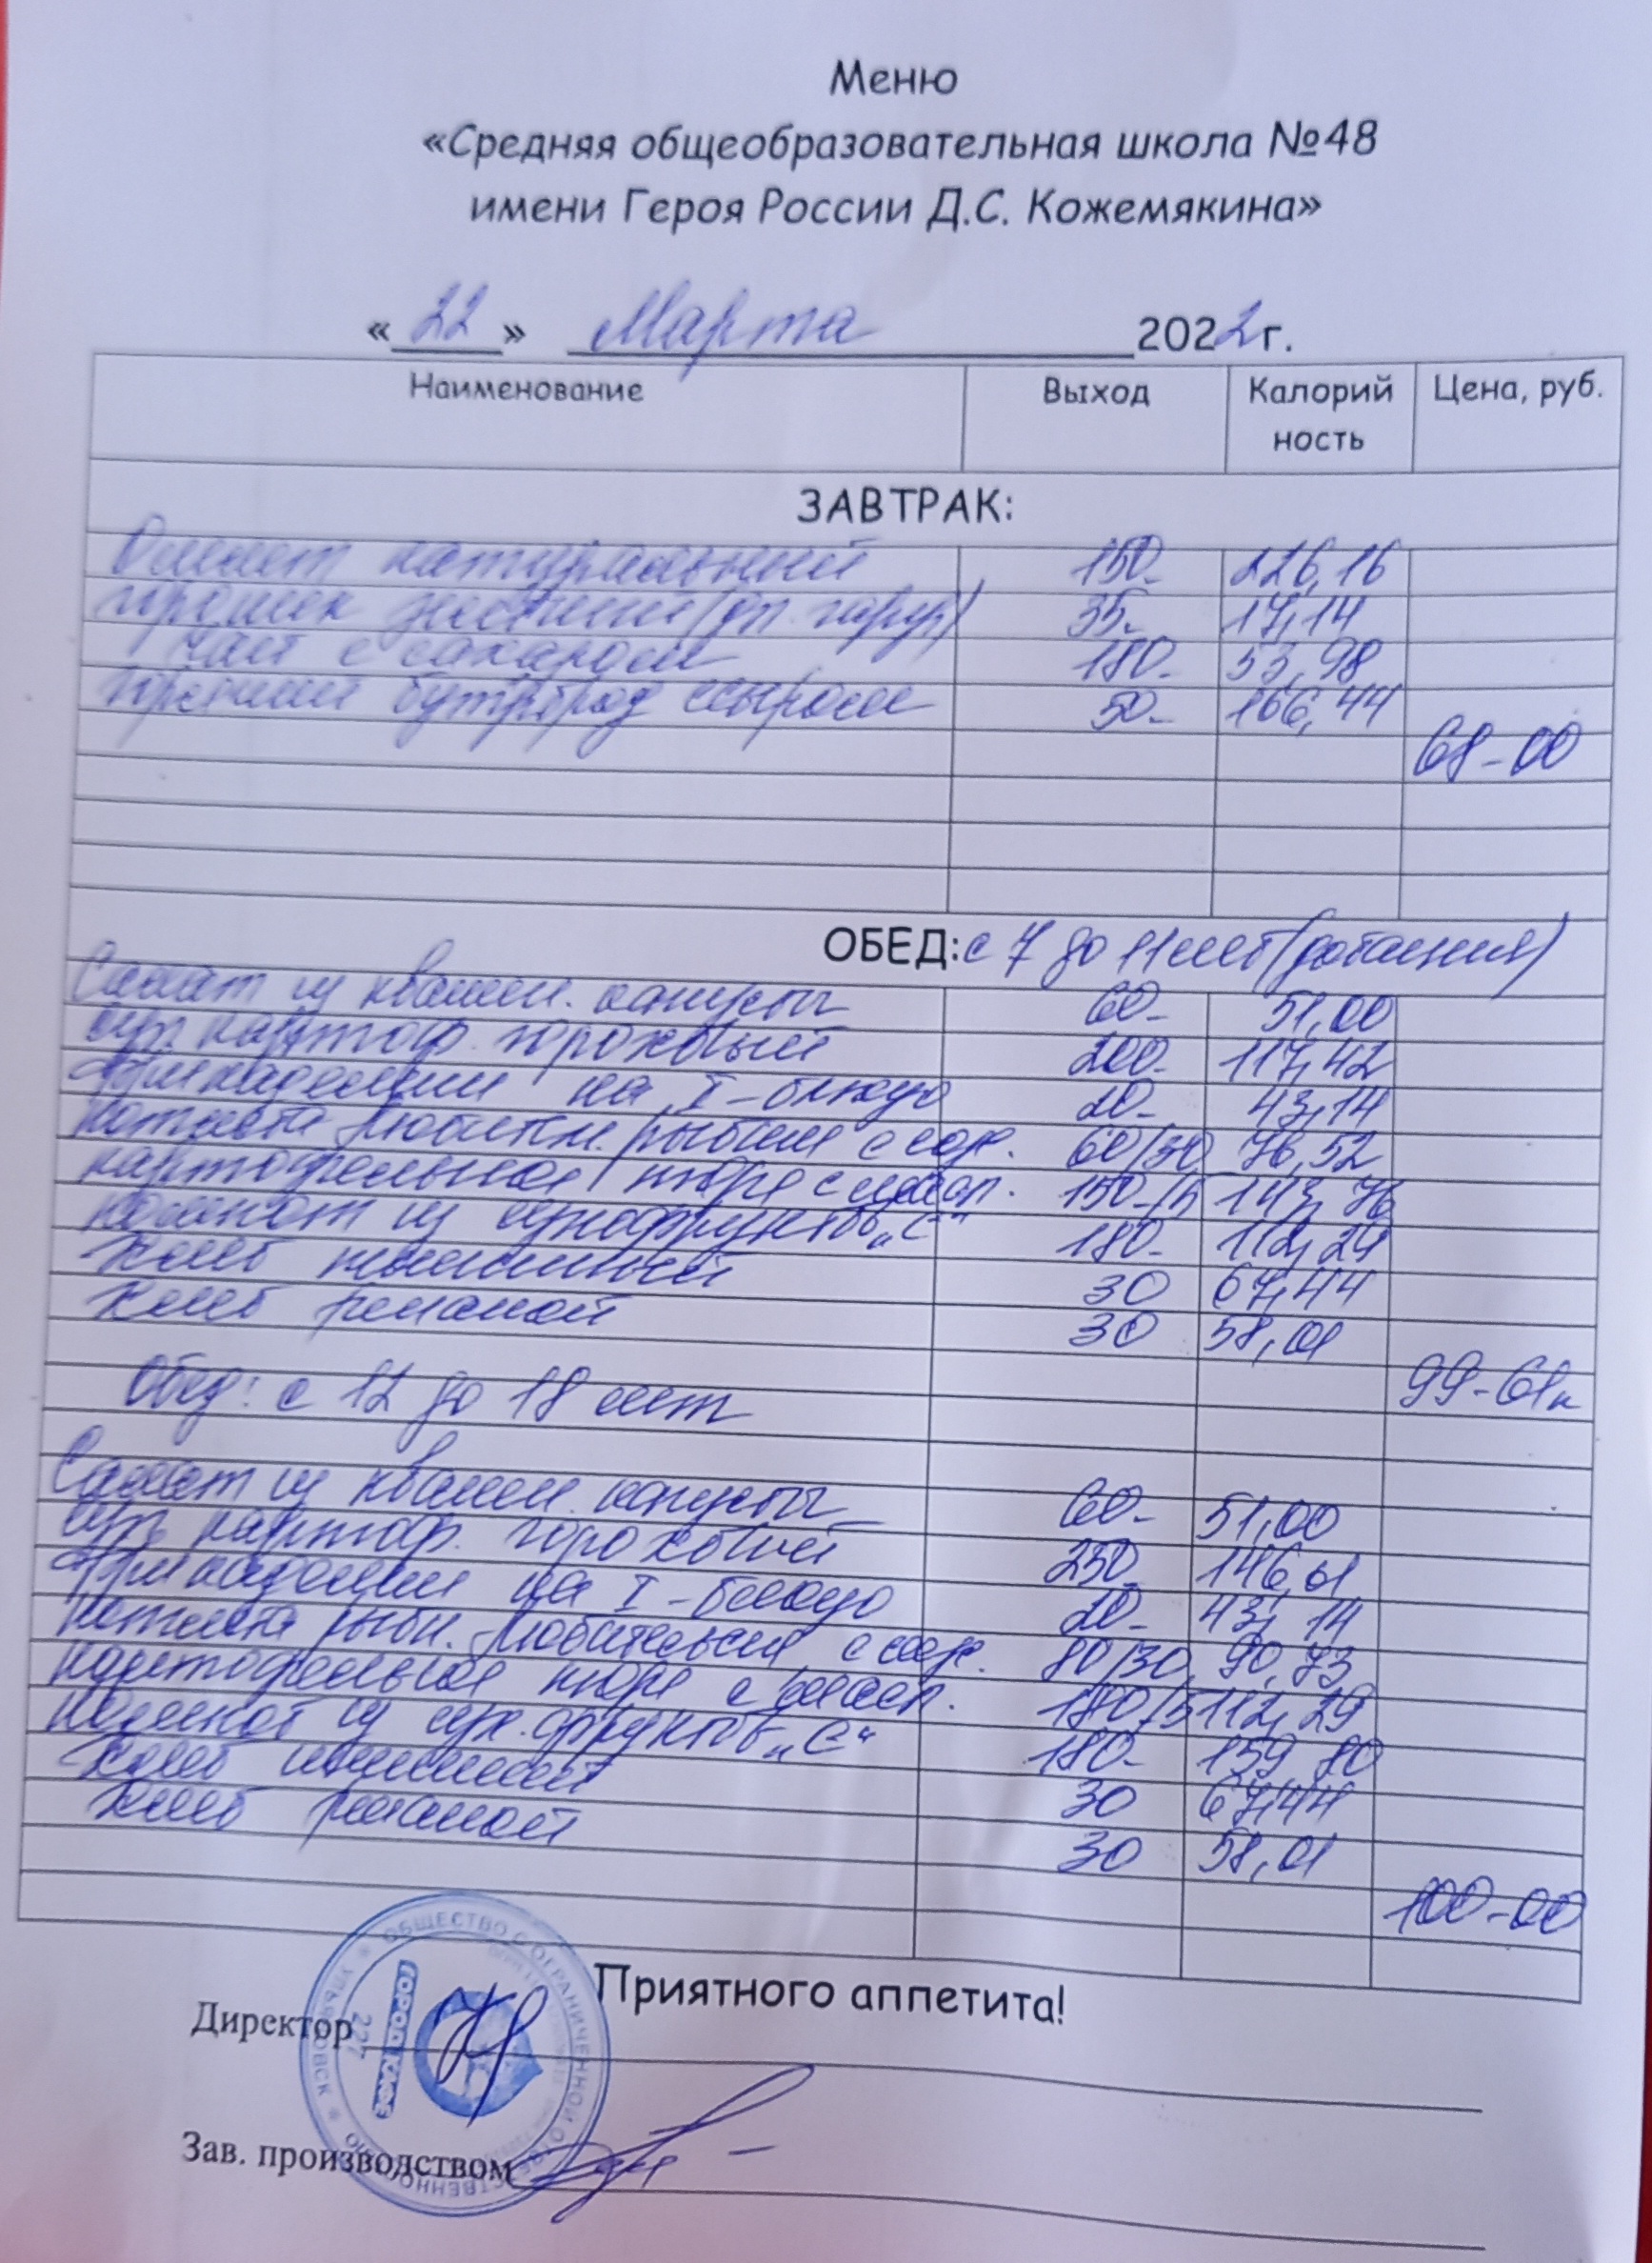 Меню
«Средняя общеобразовательная школа №48
имени Героя России Д.С. Кожемякина»
«22» Марта 2022 г.
Наименование Выход Калорий Цена, руб.
ность
ЗАВТРАК:
Омлет натуральный 150- 226,16
горошек зеленый (оп. гарнир) 35- 17,14
Чай с сахаром 180- 53,98
горячий бутерброд с сыром 50- 166,44
68-00
ОБЕД: с 7 до 11 лет (дотация)
Салат из квашен. капусты 60- 51,00
суп картоф. гороховый 200- 117,42
Фрикадельки на I-блюдо 20- 43,14
котлета Любительск. рыбная с соус. 60/30 76,52
картофельное пюре с масл. 150-/5 143,76
компот из сухофруктов „С“ 180- 112,29
Хлеб пшеничный 30 67,44
Хлеб ржаной 30 58,01
99-61к
Обед: с 12 до 18 лет
Салат из квашен. капусты 60- 51,00
суп картоф. гороховый 250 146,61
Фрикадельки на I-блюдо 20- 43,14
котлета рыбн. Любительская с соус. 80/30 90,73
картофельное пюре с масл. 180/5 112,29
компот из сух.фруктов „С“ 180- 159,80
Хлеб пшеничный 30 67,44
Хлеб ржаной 30 58,01
100-00
Приятного аппетита!
Директор
Зав. производством
ОБЩЕСТВО С ОГРАНИЧЕННОЙ ОТВЕТСТВЕННОСТЬЮ
УЛЬЯНОВСК
ГОРОД КАФЕ